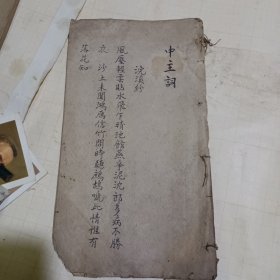 中主詞
浣溪紗
風壓輕雲貼水飛乍晴池館燕爭泥沈郎多病不勝
衣 沙上未聞鴻鴈信竹間時聽鷓鴣啼此情惟有
落花知